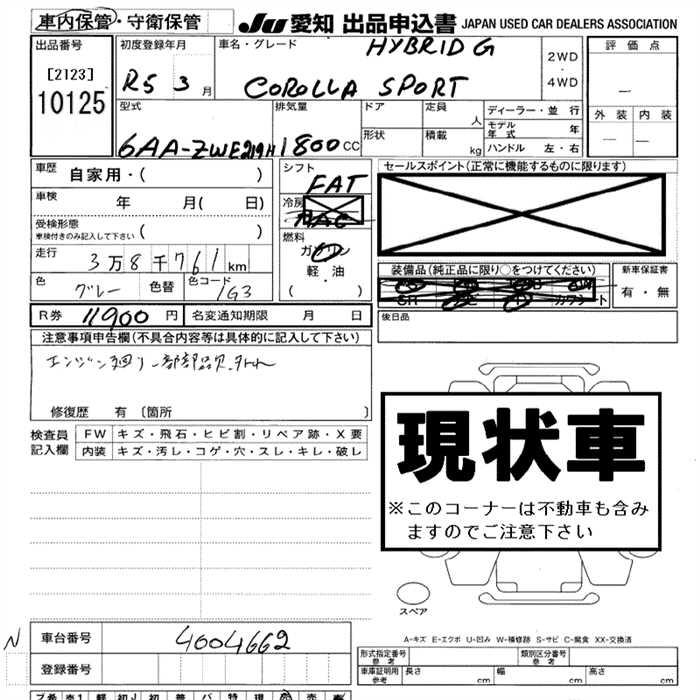 車内保管・守衛保管 JU 愛知 出品申込書 JAPAN USED CAR DEALERS ASSOCIATION
出品番号 [2123] 10125
初度登録年月 R5 3月
車名・グレード HYBRID G
COROLLA SPORT
2WD ・ 4WD
評価点 —
外装 内装
— —
型式 6AA-ZWE219H
排気量 1800 CC
ドア 定員 人
形状 積載 kg
ディーラー・並行
モデル年式 年
ハンドル 左・右
車歴 自家用・( )
車検 年 月( 日)
受検形態 ( )
車検付きのみ記入して下さい
走行 3万8千761km
色 グレー 色替 色コード 1G3
シフト FAT
冷房 AAC
燃料 ガソリン
軽・油
( ・ )
セールスポイント(正常に機能するものに限ります)
装備品(純正品に限り○をつけてください)
SR カワシート
新車保証書
有・無
後日品
R券 11900円 名変通知期限 月 日
注意事項申告欄(不具合内容等は具体的に記入して下さい)
エンジン廻り一部部品欠
修復歴 有 〔箇所 〕
検査員記入欄 FW キズ・飛石・ヒビ割・リペア跡・X要
内装 キズ・汚レ・コゲ・穴・スレ・キレ・破レ
現状車
※このコーナーは不動車も含みますのでご注意下さい
スペア
A-キズ E-エクボ U-凹み W-補修跡 S-サビ C-腐食 XX-交換済
N 車台番号 4004662
登録番号
形式指定番号 参考 類別区分番号 参考
車庫証明用 参考 長さ cm 幅 cm 高さ cm